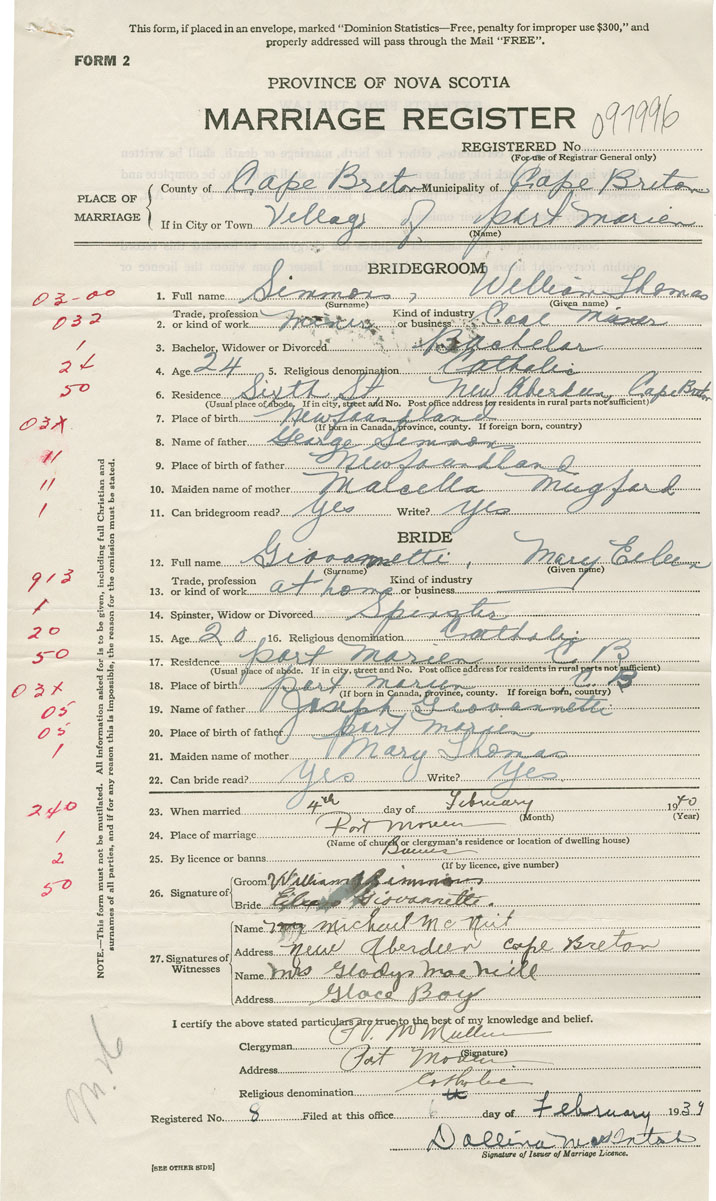 This form, if placed in an envelope, marked "Dominion Statistics—Free, penalty for improper use $300," and
properly addressed will pass through the Mail "FREE".
FORM 2
PROVINCE OF NOVA SCOTIA
MARRIAGE REGISTER 091996
REGISTERED No
(For use of Registrar General only)
PLACE OF MARRIAGE
County of Cape Breton Municipality of Cape Breton
If in City or Town Village of port Marien
(Name)
BRIDEGROOM
03-00 1. Full name Simmons, William Thomas
(Surname) (Given name)
032 2. Trade, profession or kind of work Miner Kind of industry or business Coal Miner
1 3. Bachelor, Widower or Divorced Bachelor
2X 4. Age 24 5. Religious denomination Catholic
50 6. Residence Sixth St New Aberdeen, Cape Breton
(Usual place of abode. If in city, street and No. Post office address for residents in rural parts not sufficient)
03X 7. Place of birth Newfoundland
(If born in Canada, province, county. If foreign born, country)
8. Name of father George Simmons
11 9. Place of birth of father Newfoundland
11 10. Maiden name of mother Malcella Mugford
1 11. Can bridegroom read? Yes Write? Yes
BRIDE
12. Full name Giovannetti, Mary Eileen
(Surname) (Given name)
913 13. Trade, profession or kind of work at home Kind of industry or business
1 14. Spinster, Widow or Divorced Spinster
20 15. Age 20 16. Religious denomination Catholic
50 17. Residence port Marien C.B
(Usual place of abode. If in city, street and No. Post office address for residents in rural parts not sufficient)
03X 18. Place of birth port marien C B
(If born in Canada, province, county. If foreign born, country)
05 19. Name of father Joseph Giovannetti
05 20. Place of birth of father port marien
1 21. Maiden name of mother Mary Thomas
22. Can bride read? Yes Write? Yes
240 23. When married 4th day of February 1940
(Month) (Year)
1 24. Place of marriage Port Morien
(Name of church or clergyman's residence or location of dwelling house)
2 25. By licence or banns Banns
(If by licence, give number)
50 26. Signature of Groom William Simmons
Bride Eileen Giovannetti.
27. Signatures of Witnesses
Name Michael McNeit
Address New Aberdeen Cape Breton
Name Mrs Gladys MacNeill
Address Glace Bay
I certify the above stated particulars are true to the best of my knowledge and belief.
Clergyman McMullin
(Signature)
Address Port Morien
Religious denomination Catholic
Registered No. 8 Filed at this office 6 day of February 1939
MacIntosh
Signature of Issuer of Marriage Licence.
[SEE OTHER SIDE]
NOTE.—This form must not be mutilated. All information asked for is to be given, including full Christian and
surnames of all parties, and if for any reason this is impossible, the reason for the omission must be stated.